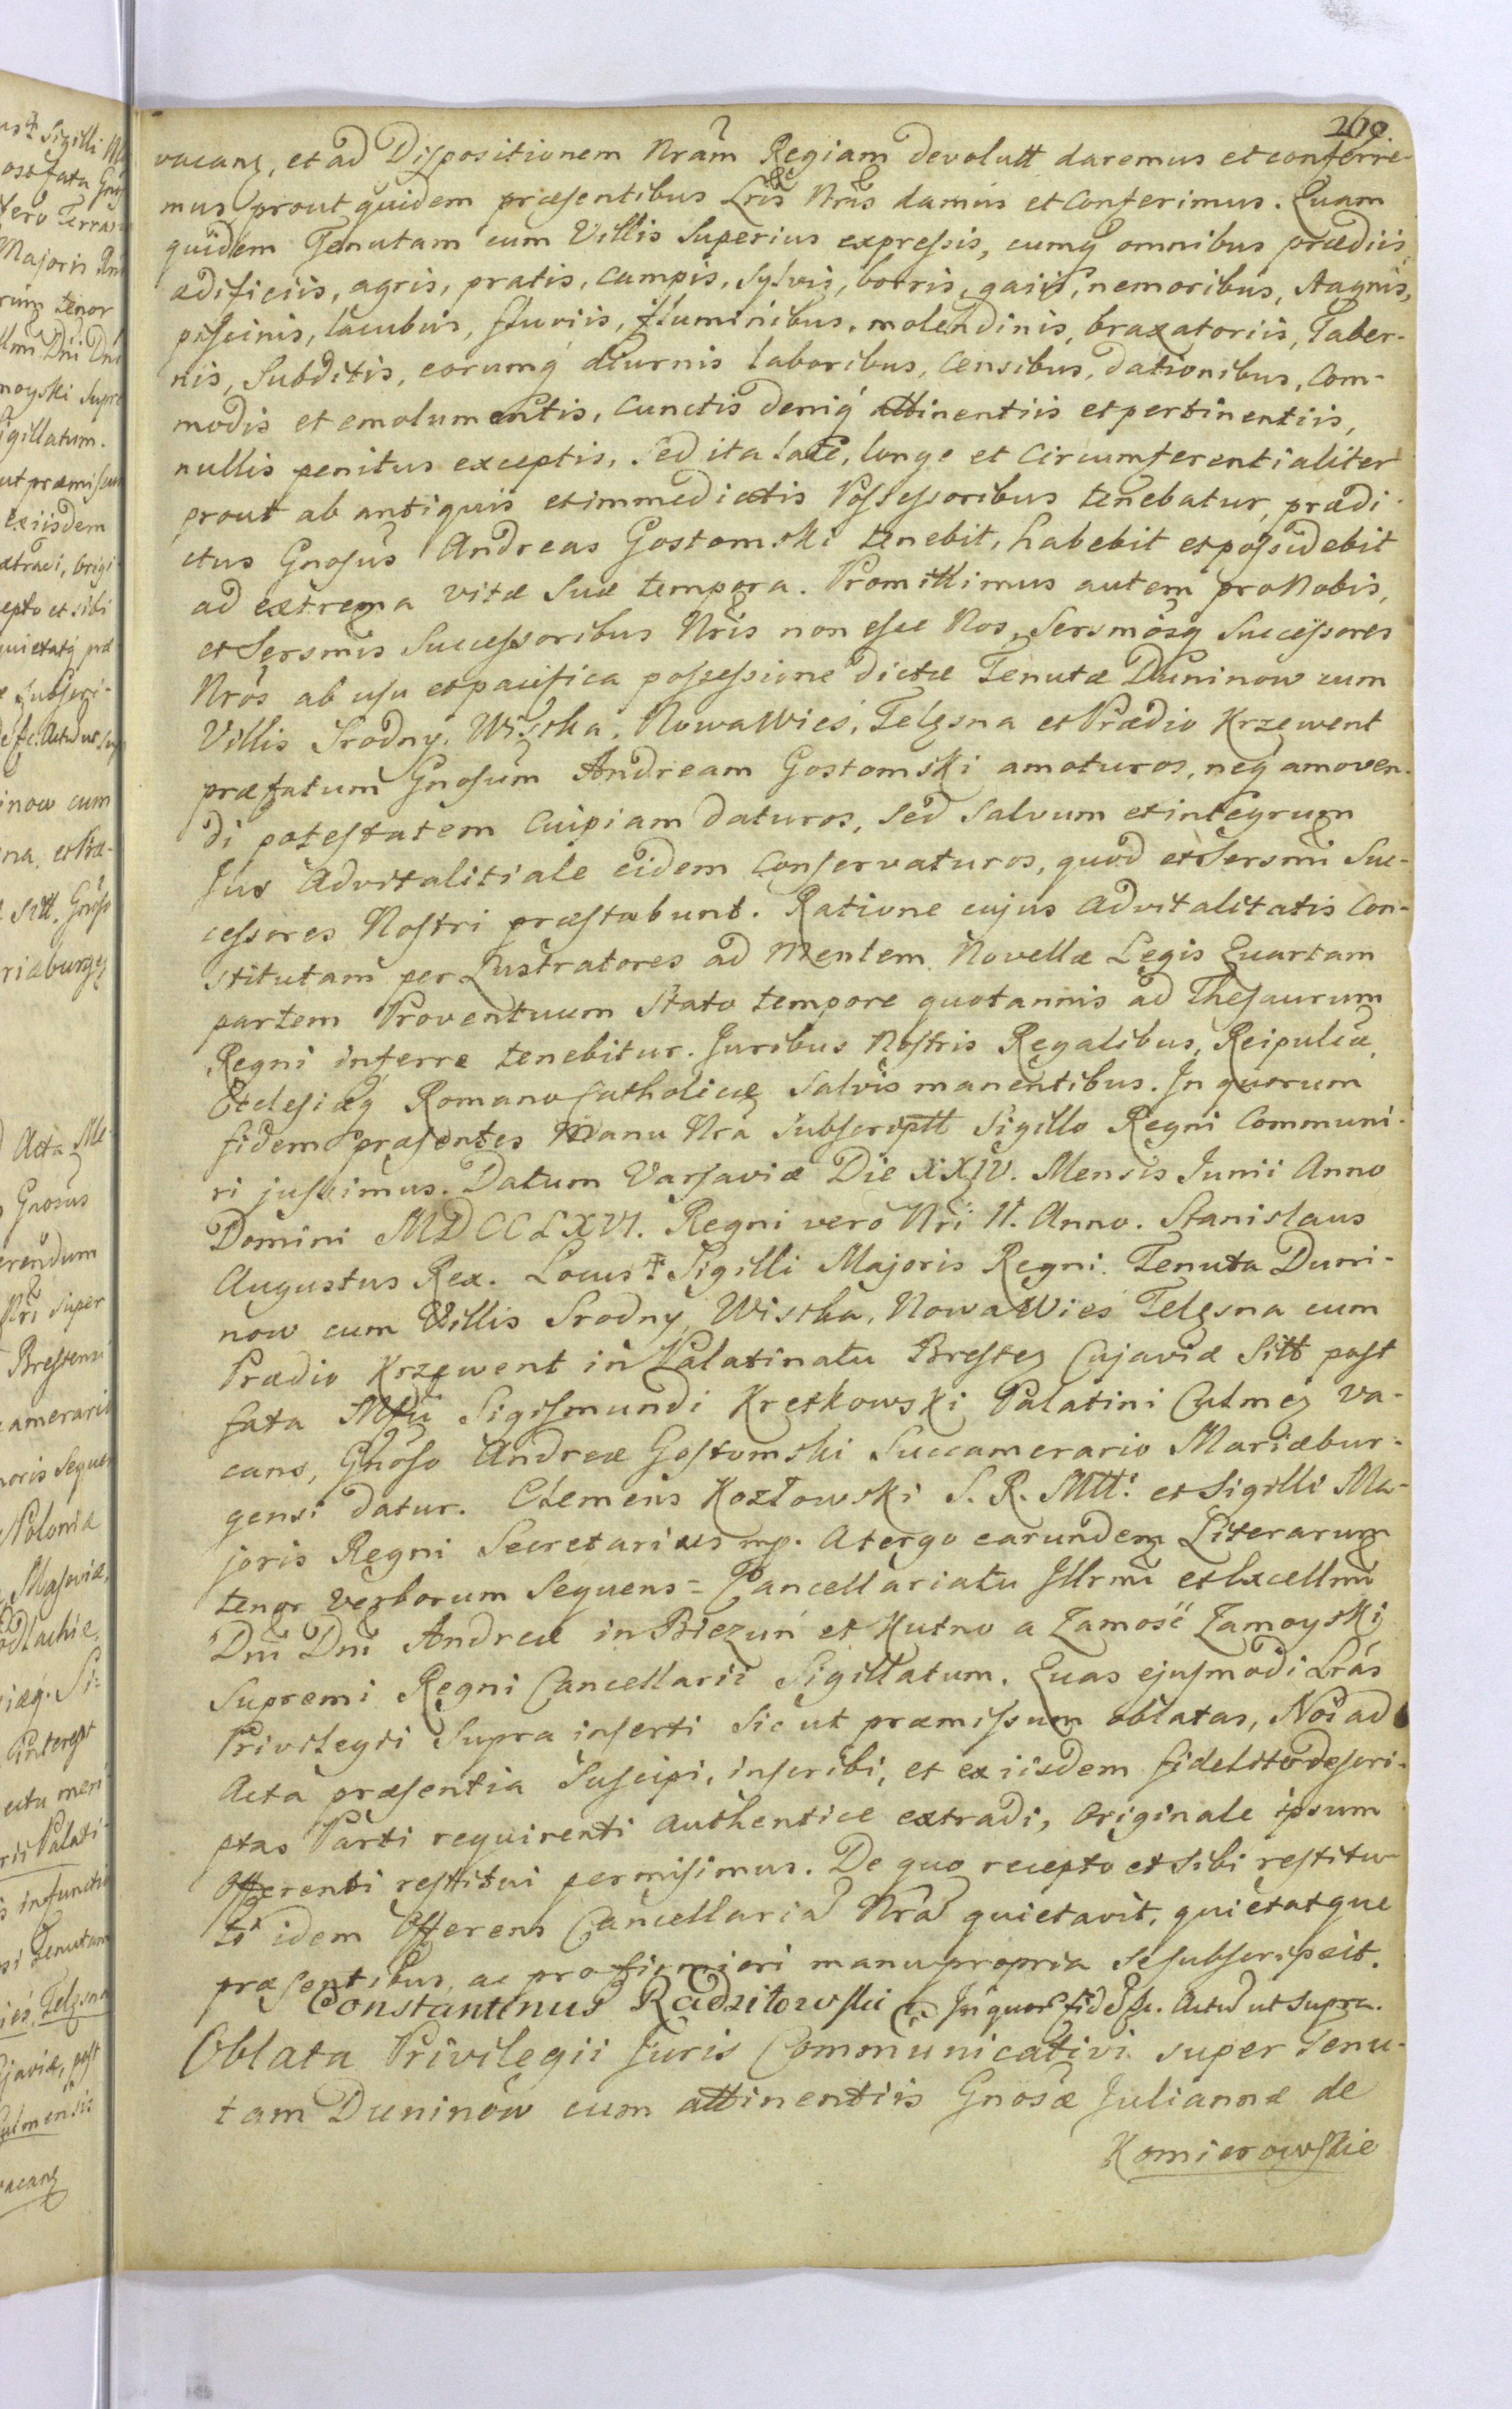 269.
vacanz, et ad Dispositionem Nram Regiam devolutt daremus et conferre-
mus prout quidem præsentibus Lris Nris damus et conferimus. Quam
quidem Tenutam cum Villis Superius expressis, cumq omnibus prædiis,
ædificiis, agris, pratis, campis, sylvis, borris, gaiis, nemoribus, stagnis,
piscinis, lacubus, fluviis, fluminibus, molendinis, braxatoriis, Taber-
nis, Subditis, eorumq diurnis laboribus, Censibus, dationibus, Com-
modis et emolumentis, cunctis deniq attinentiis et pertinentiis,
nullis penitus exceptis, Sed ita late, longe et Circumferentialiter
prout ab antiquis et immediatis Possessoribus tenebatur, prædi-
ctus Gnosus Andreas Gostomski tenebit, habebit et possidebit
ad extrema vitæ Suæ tempora. Promittimus autem pro Nobis,
et Sersmis Successoribus Nris non esse Nos, Sersmosq Successores
Nros ab usu et pacifica possessione dictæ Tenutæ Duninow cum
Villis Srodny, Wistka, Nowawies, Telzsna et Prædio Krzewent
præfatum Gnosum Andream Gostomski amoturos, neq amoven-
di potestatem Cuipiam daturos, Sed Salvum et integrum
Jus Advitalitiale eidem Conservaturos, quod et Sersmi Suc-
cessores Nostri præstabunt. Ratione cujus Advitalitatis Con-
stitutam per Lustratores ad Mentem Novellæ Legis Quartam
partem Proventuum Stato tempore quotannis ad Thesaurum
Regni inferre tenebitur. Juribus Nostris Regalibus, Reipulcæ,
Ecclesiæq Romano Catholicæ Salvis manentibus. In quorum
fidem præsentes Manu Nra Subscriptt Sigillo Regni Communi-
ri jussimus. Datum Varsaviæ Die XXIV. Mensis Junii Anno
Domini MDCCLXVI. Regni vero Nri II. Anno. Stanislaus
Augustus Rex. Locus Sigilli Majoris Regni. Tenuta Duni-
now cum Villis Srodny, Wistka, Nowawies Telzsna cum
Prædio Krzewent in Palatinatu Brestez Cujaviæ Sitt post
fata Mfci Sigismundi Kretkowski Palatini Culmez va-
cans, Gnoso Andreæ Gostomski Succamerario Mariæbur-
gensi datur. Clemens Kozłowski S. R. Mtt: et Sigilli Ma-
joris Regni Secretarius mp. A tergo earundem Literarum
tenor verborum Sequens = Cancellariatu Illrmi et Excellmi
Dni Dni Andreæ in Biezuń et Kutno a Zamość Zamoyski
Supremi Regni Cancellarii Sigillatum. Quas ejusmodi Lras
Privilegii Supra inserti Sic ut præmissum oblatas, Nos ad
Acta præsentia Suscipi, inscribi, et ex iisdem fideliter descri-
ptas Parti requirenti authentice extradi, Originale ipsum
Offerenti restitui permisimus. De quo recepto et Sibi restitu-
to idem Offerens Cancellaria Nra quietavit, quietatque
præsentibus, ac pro firmiori manu propria Se subscripsit.
Constantinus Radziłowski In quor fid &c. Actu ut Supra.
Oblata Privilegii Juris Communicativi super Tenu-
tam Duninow cum attinentiis Gnosæ Juliannæ de
Komierowskie